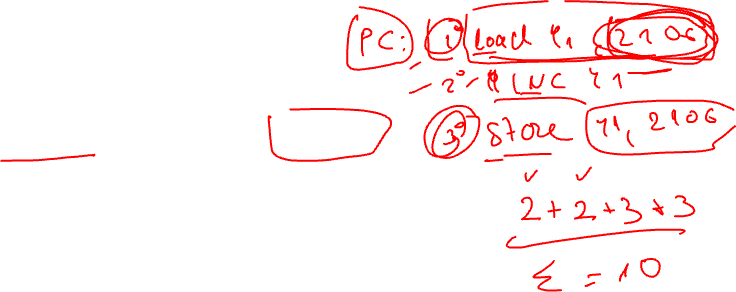 PC: 1° Load r1 2106
2° INC r1
3° Store r1, 2106
2 + 2 + 3 + 3
Σ = 10